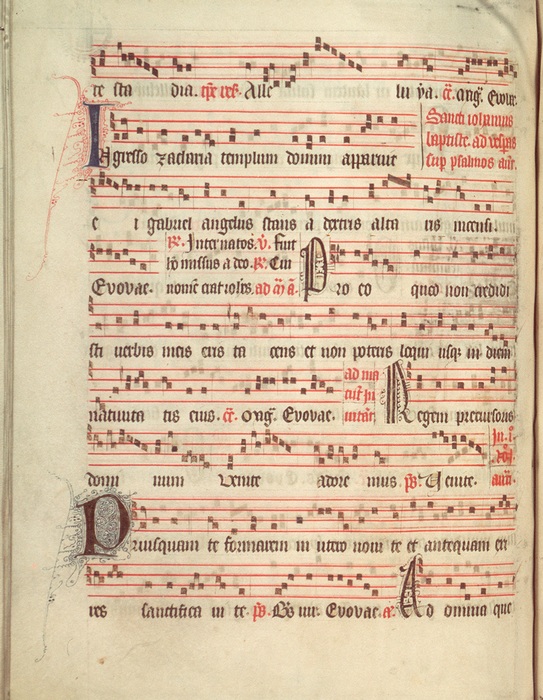 te sta dia. Alle lu ya. ang. Evovae
Sancti iohannis
baptiste. ad vesperas
sup psalmos ant.
Ingresso zacharia templum domini apparuit
e i gabriel angelus stans a dextris alta ris incensi.
R. Inter natos. V. Fuit
ho missus a deo. R. Cui
Evovae. ad M. a. Pro eo quod non credidi
sti verbis meis eris ta cens et non poteris loqui usque in diem
ad ma
nativita tis eius. Evovae. Regem precursoris
domi num Venite adore mus. ps. Venite. ant.
Priusquam te formarem in utero novi te et antequam exi
res sanctifica vi te. ps. Evovae. a. Ad omnia que